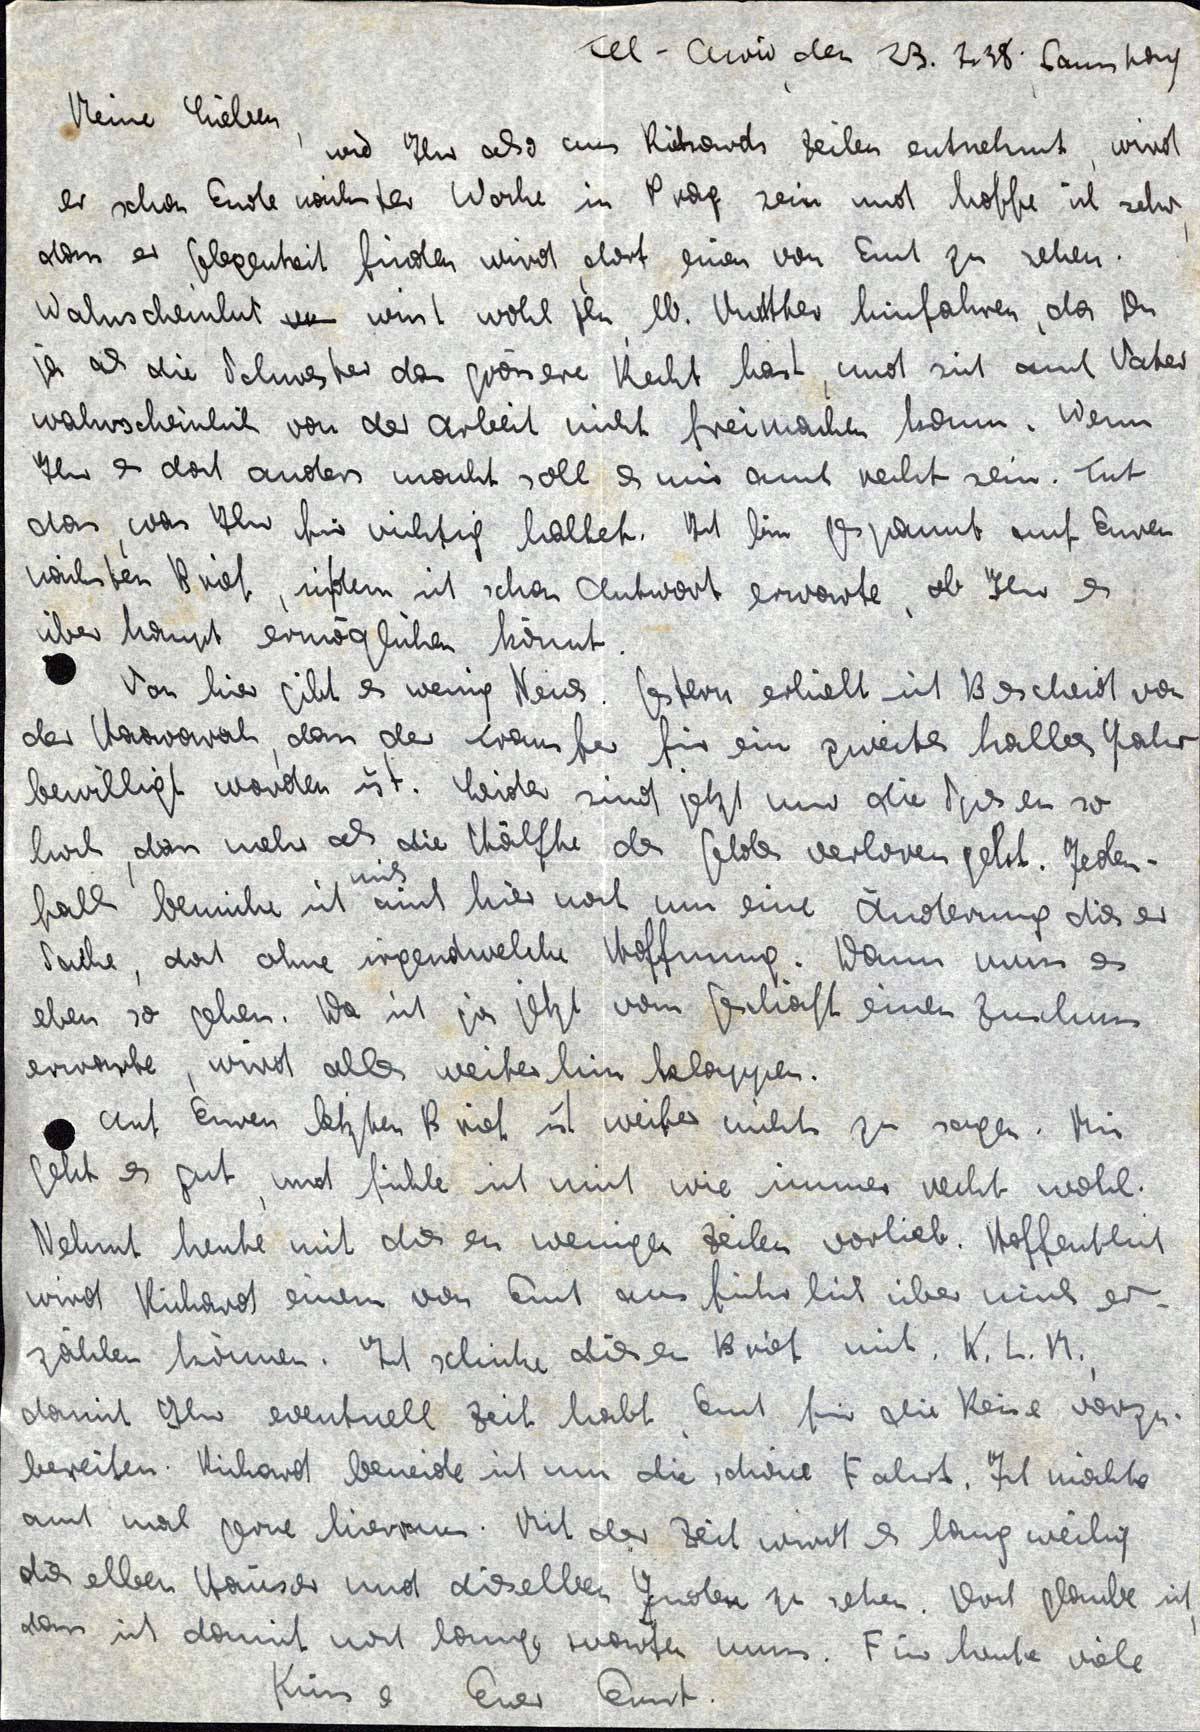 Tel-Aviv, den 23. 7. 38. Samstag
Meine Lieben,
wie Ihr also aus Richards Zeilen entnehmt, wird
er schon Ende nächster Woche in Prag sein und hoffe ich sehr,
dass er Gelegenheit finden wird, dort einen von Euch zu sehen.
Wahrscheinlich wirst wohl Du, lb. Mutter hinfahren, da Du
ja als die Schwester das grössere Recht hast, und sich auch Vater
wahrscheinlich von der Arbeit nicht freimachen kann. Wenn
Ihr es doch anders macht soll es mir auch recht sein. Tut
das, was Ihr für richtig haltet. Ich bin gespannt auf Euren
nächsten Brief, in dem ich schon Antwort erwarte, ob Ihr es
überhaupt ermöglichen könnt.
Von hier gibt es wenig Neues. Gestern erhielt ich Bescheid von
der Haavarah, dass der Transfer für ein zweites halbes Jahr
bewilligt worden ist. Leider sind jetzt nur die Spesen so
hoch, dass mehr als die Hälfte des Geldes verloren geht. Jeden-
falls bemühe ich mich auch hier noch um eine Änderung dieser
Sache, doch ohne irgendwelche Hoffnung. Dann muss es
eben so gehen. Da ich ja jetzt vom Geschäft einen Zuschuss
erwarte, wird alles weiterhin klappen.
Auf Euren letzten Brief ist weiter nichts zu sagen. Mir
geht es gut, und fühle ich mich wie immer recht wohl.
Nehmt heute mit diesen wenigen Zeilen vorlieb. Hoffentlich
wird Richard einem von Euch ausführlich über mich er-
zählen können. Ich schicke diesen Brief mit K.L.M.,
damit Ihr eventuell Zeit habt, Euch für die Reise vorzu-
bereiten. Richard beneide ich um die schöne Fahrt. Ich möchte
auch mal gerne hieraus. Mit der Zeit wird es langweilig
dieselben Häuser und dieselben Juden zu sehen. Doch glaube ich,
dass ich damit noch lange warten muss. Für heute viele
Küsse Euer Ernst.